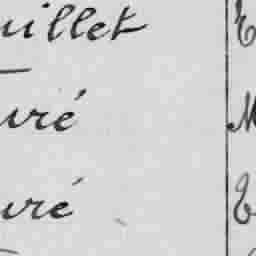 uillet
uré
uré